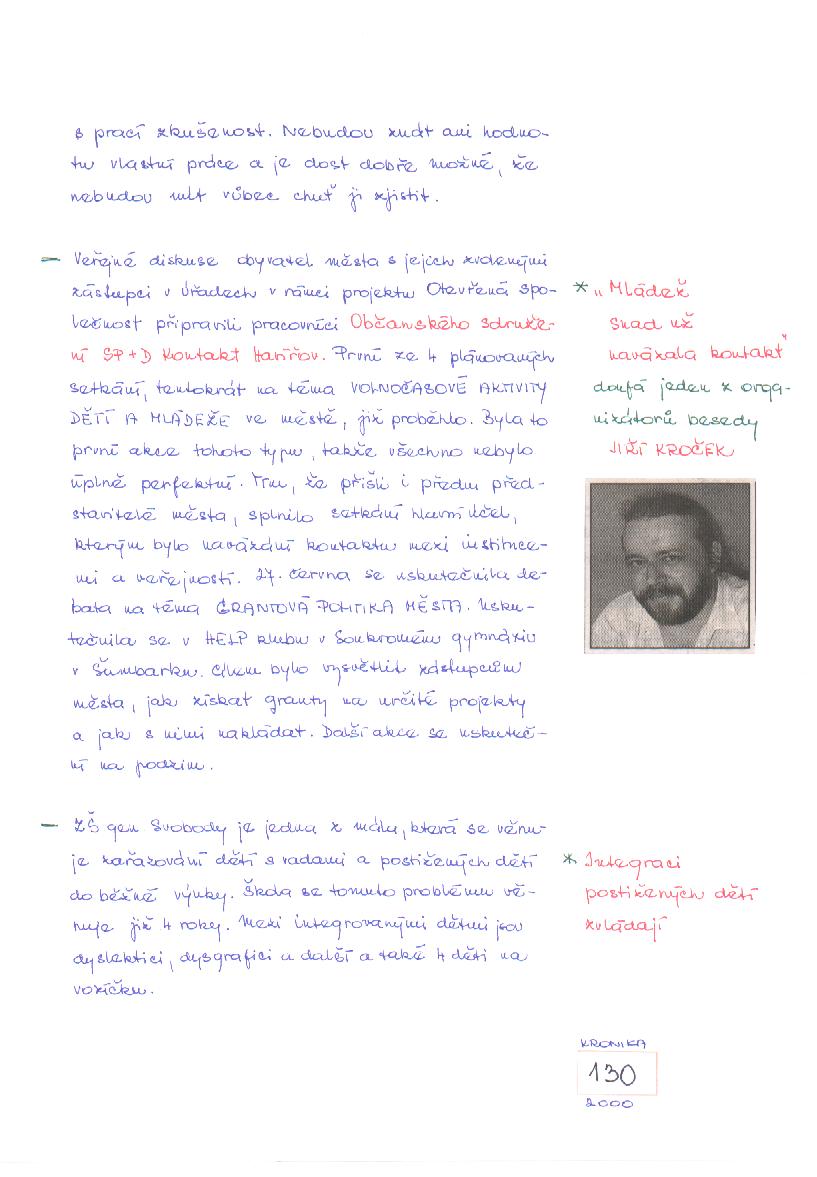 s prací zkušenost. Nebudou znát ani hodno-
tu vlastní práce a je dost dobře možné, že
nebudou mít vůbec chuť ji zjistit.
— Veřejné diskuse obyvatel města s jejich zvolenými
zástupci v úřadech v rámci projektu Otevřená spo-
lečnost připravili pracovníci Občanského sdruže-
ní SP+D Kontakt Havířov. První ze 4 plánovaných
setkání, tentokrát na téma VOLNOČASOVÉ AKTIVITY
DĚTÍ A MLÁDEŽE ve městě, již proběhlo. Byla to
první akce tohoto typu, takže všechno nebylo
úplně perfektní. Tím, že přišli i přední před-
stavitelé města, splnilo setkání hlavní účel,
kterým bylo navázání kontaktu mezi instituce-
mi a veřejností. 27. června se uskutečnila de-
bata na téma GRANTOVÁ POLITIKA MĚSTA. Usku-
tečnila se v HELP klubu v Soukromém gymnáziu
v Šumbarku. Cílem bylo vysvětlit zástupcům
města, jak získat granty na určité projekty
a jak s nimi nakládat. Další akce se uskuteč-
ní na podzim.
* „Mládež
snad už
navázala kontakt"
doufá jeden z orga-
nizátorů besedy
JIŘÍ KROČEK
— ZŠ gen Svobody je jedna z mála, která se věnu-
je zařazování dětí s vadami a postižených dětí
do běžné výuky. Škola se tomuto problému vě-
nuje již 4 roky. Mezi integrovanými dětmi jsou
dyslektici, dysgrafici a další a také 4 děti na
vozíčku.
* Integraci
postižených dětí
zvládají
KRONIKA
130
2000